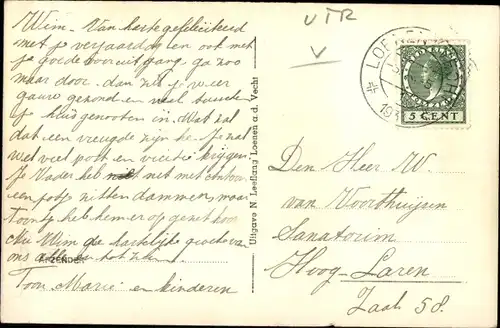 Wim - Van harte gefeliciteerd
met je verjaardag en ook met
je goede vooruitgang ga zoo
maar door. dan zul je weer
gauw gezond en wel
huisgenooten in. Wat zal
dat een vreugde zijn he. Je zal
wel veel post en visitie krijgen.
Je Vader heb niet met
een potje zitten dammen, maar
Toontje heb hem er op gezet hoor
Nu Wim de hartelijke groeten van
ons allen en tot ziens
AFZENDER
Toon Marie en kinderen
Uitgave N. Leeflang Loenen a.d. Vecht
UTR
LOENEN
5 CENT
Den Heer W.
van Voorthuijsen
Sanatorium
Hoog-Laren
Zaal 58.